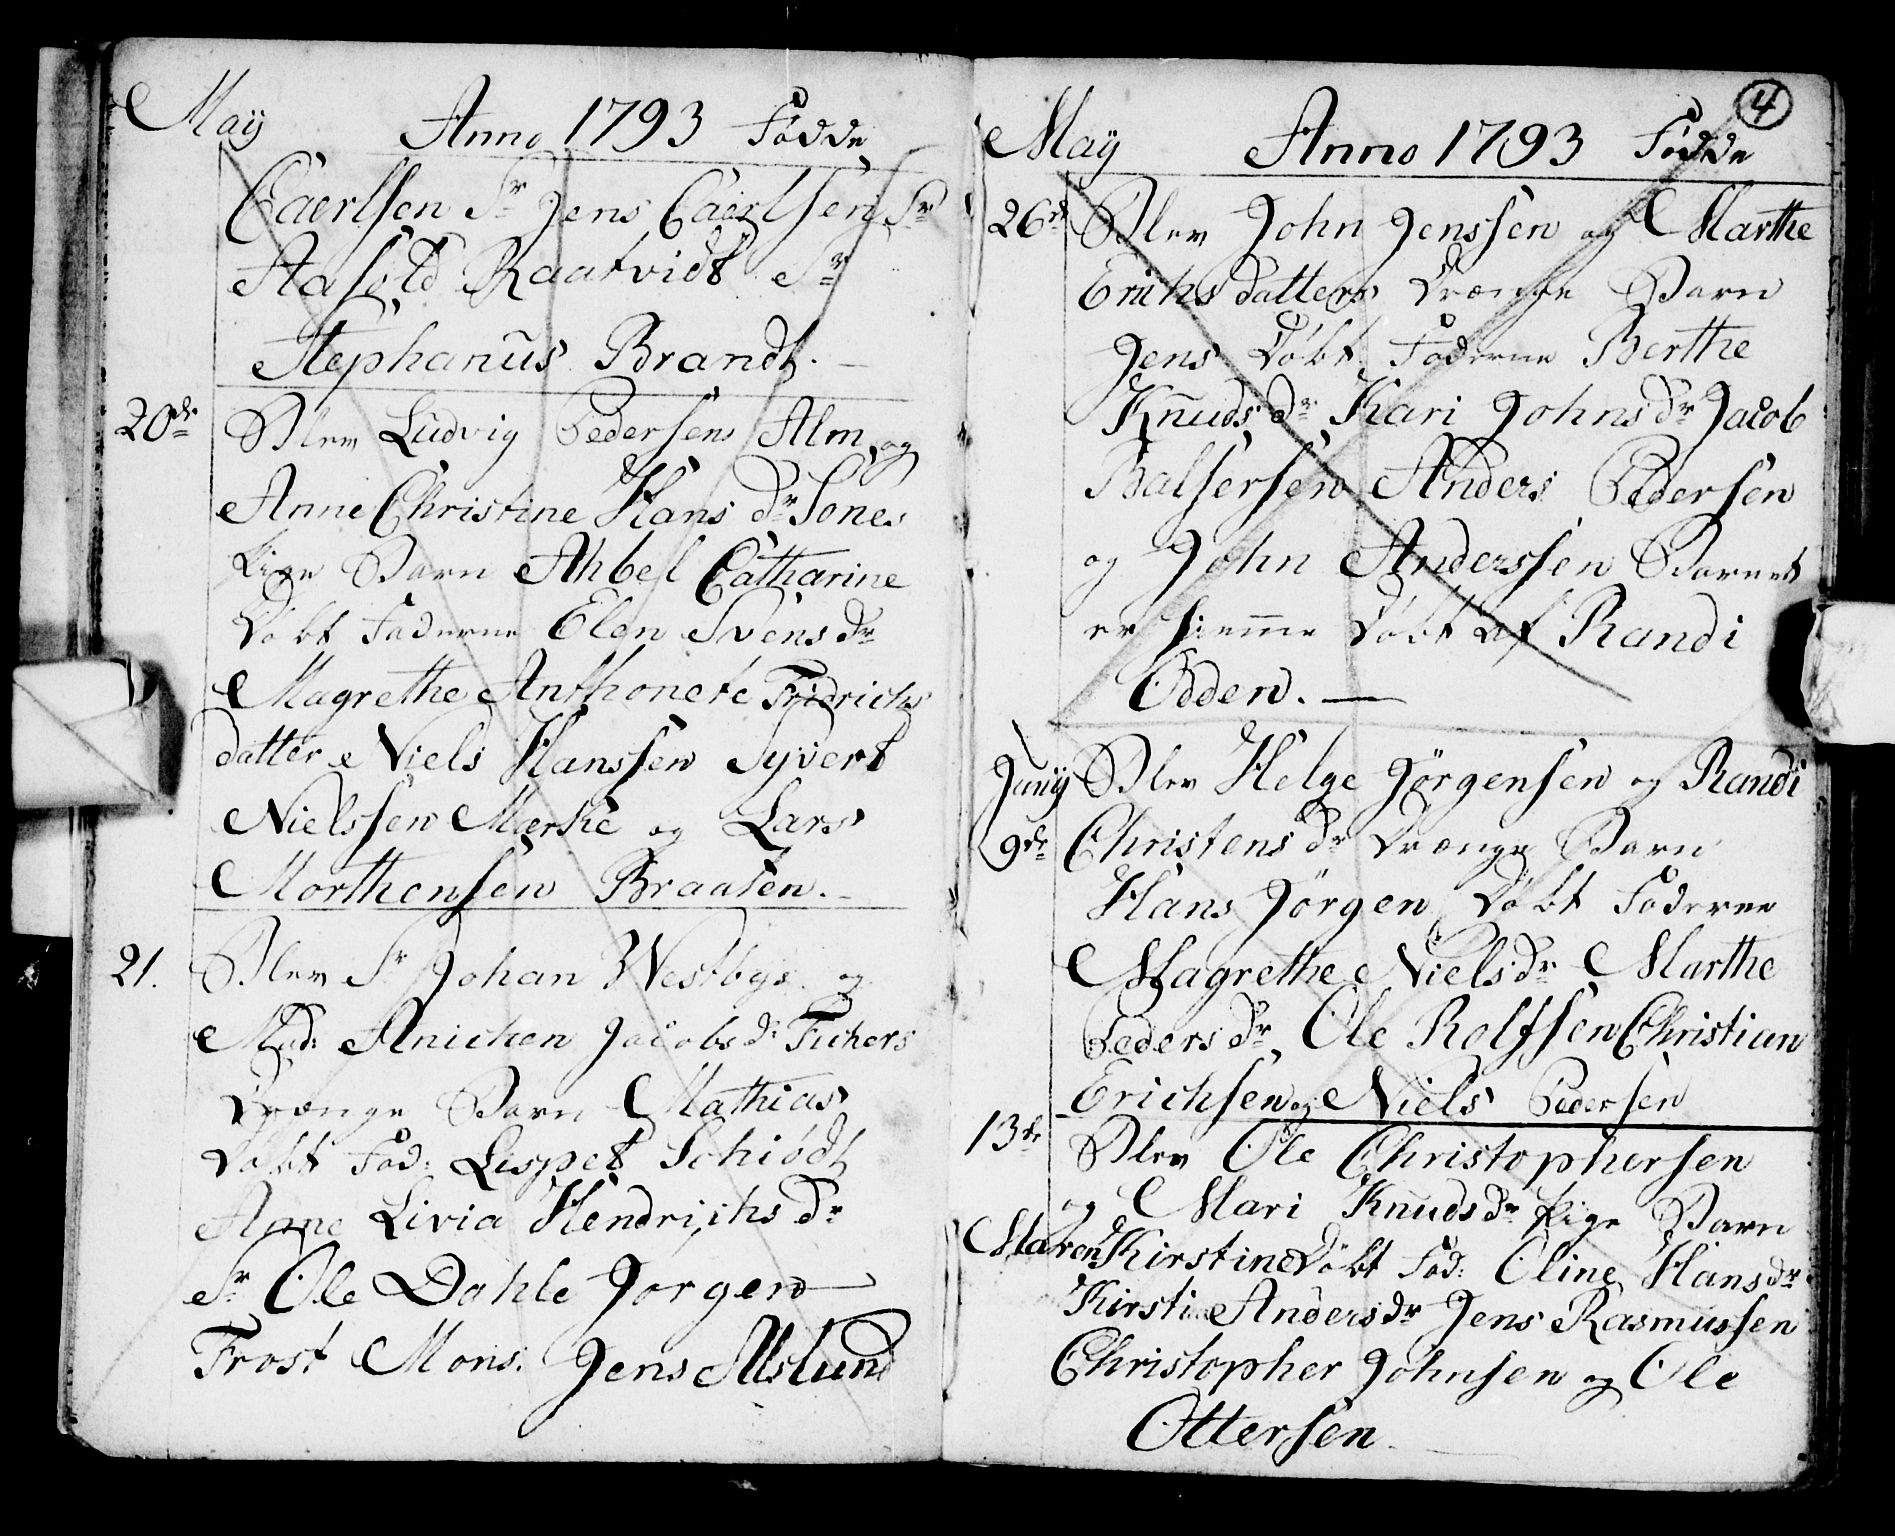 May Anno 1793 Födde
Caerlsen Sr Jens Caerlsen Sr
Aasold Raatvidt Sr
Stephanus Brandt. —
20de Blev Ludvig Pedersens Alm og
Anne Christine Hans dr Sones
Pige Barn Ahbel Catharine
Döbt Faderne Elen Svens dr
Magrethe Anthonete Fridrichs
datter Niels Hanssen Syvert
Nielssen Mærske og Lars
Morthensen Braaten. —
21. Blev Sr Johan Westbye og
Mad: Anichen Jacobs dr Fichers
Drænge Barn Mathias
Döbt Fad: Lispet Schiödt
Anne Livia Hendrichs dr
Sr Ole Dahle Jørgen
Frost Mons. Jens Alslund
4
May Anno 1793 Födde
26de Blev John Jenssen og Marthe
Erichsdatters Drænge Barn
Jens Döbt Fadderne Berthe
Knuds dr Kari Johns dr Jacob
Balsersen Anders Pedersen
og John Anderssen Barnet
er hiemme Döbt af Randi
Odden. —
Juny Blev Helge Jørgensen og Randi
9de Christens dr Drænge Barn
Hans Jørgen Döbt Faderne
Magrethe Niels dr Marthe
Peders dr Ole Rolfsen Christian
Erichsen og Niels Pedersen
13de Blev Ole Christophersen
og Mari Knuds dr Pige Barn
Maren Kirstine Döbt Fad: Oline Hans dr
Kirstine Anders dr Jens Rasmussen
Christopher Johnsen og Ole
Ottersen